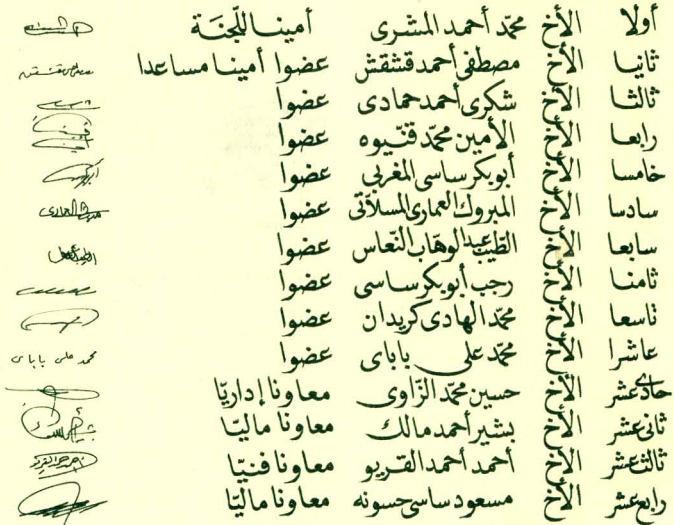 أولا الأخ محمّد أحمد المشرى أمينا للّجنَة
ثانيا الأخ مصطفى أحمد قشقش عضوا أمينا مساعدا
ثالثا الأخ شكرى أحمد حمادى عضوا
رابعا الأخ الأمين محمّد قنّيوه عضوا
خامسا الأخ أبوبكر ساسى المغربي عضوا
سادسا الأخ المبروك العمارى المسلّاتى عضوا المبروك العمارى
سابعا الأخ الطّيب عبد الوهّاب النّعاس عضوا
ثامنا الأخ رجب أبوبكر ساسى عضوا
تاسعا الأخ محمّد الهادى كريدان عضوا
عاشرا الأخ محمّد على باباى عضوا محمد على باباى
حادى عشر الأخ حسين محمّد الزّاوى معاونا إداريّا
ثانى عشر الأخ بشير أحمد مالك معاونا ماليّا
ثالث عشر الأخ أحمد أحمد القريو معاونا فنيّا
رابع عشر الأخ مسعود ساسى حسونه معاونا ماليّا